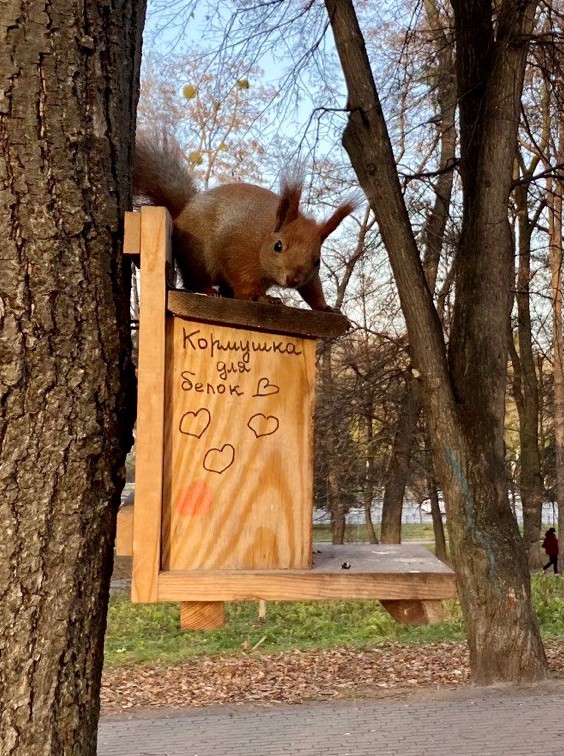 Кормушка
для
белок